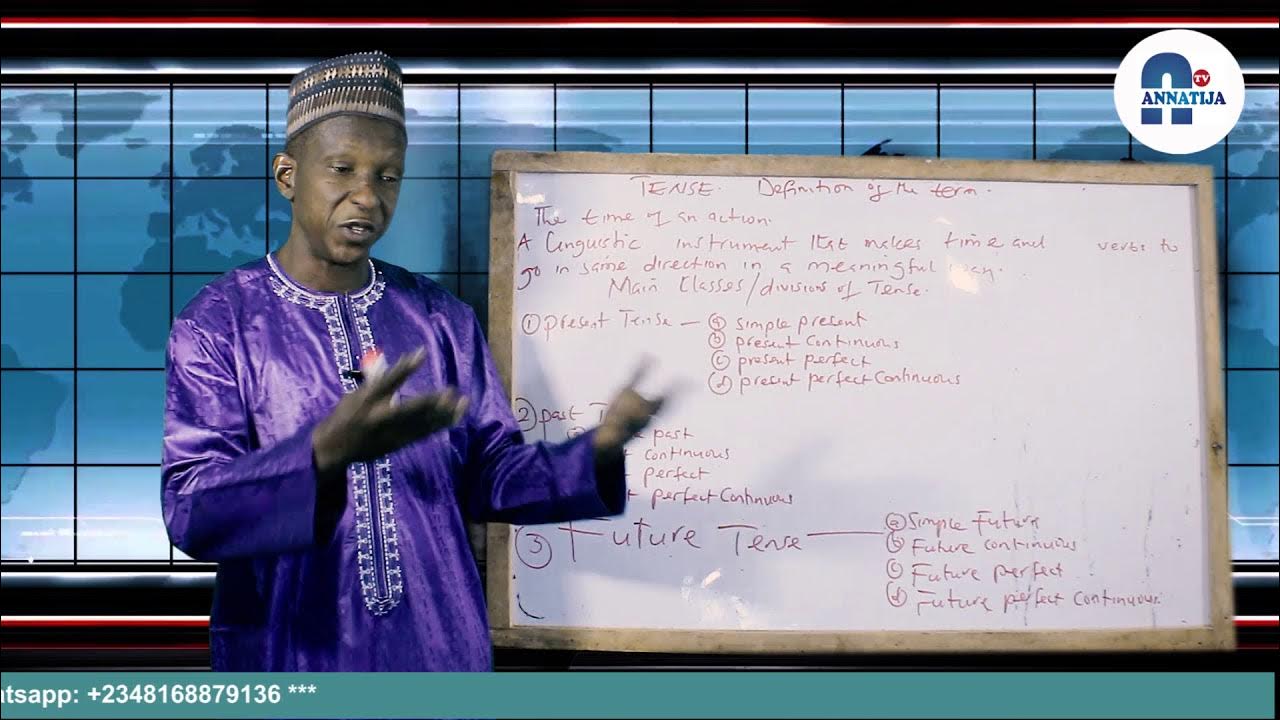 TV
ANNATIJA
TENSE. Definition of the term.
The time of an action.
A linguistic instrument that makes time and verbs to
go in same direction in a meaningful way.
Main Classes/divisions of Tense.
① present Tense — ⓐ simple present
ⓑ present Continuous
ⓒ present perfect
ⓓ present perfect Continuous
② past
past
continuous
perfect
perfect Continuous
③ Future Tense — ⓐ Simple Future
ⓑ Future continuous
ⓒ Future perfect
ⓓ Future perfect Continuous.
atsapp: +2348168879136 ***